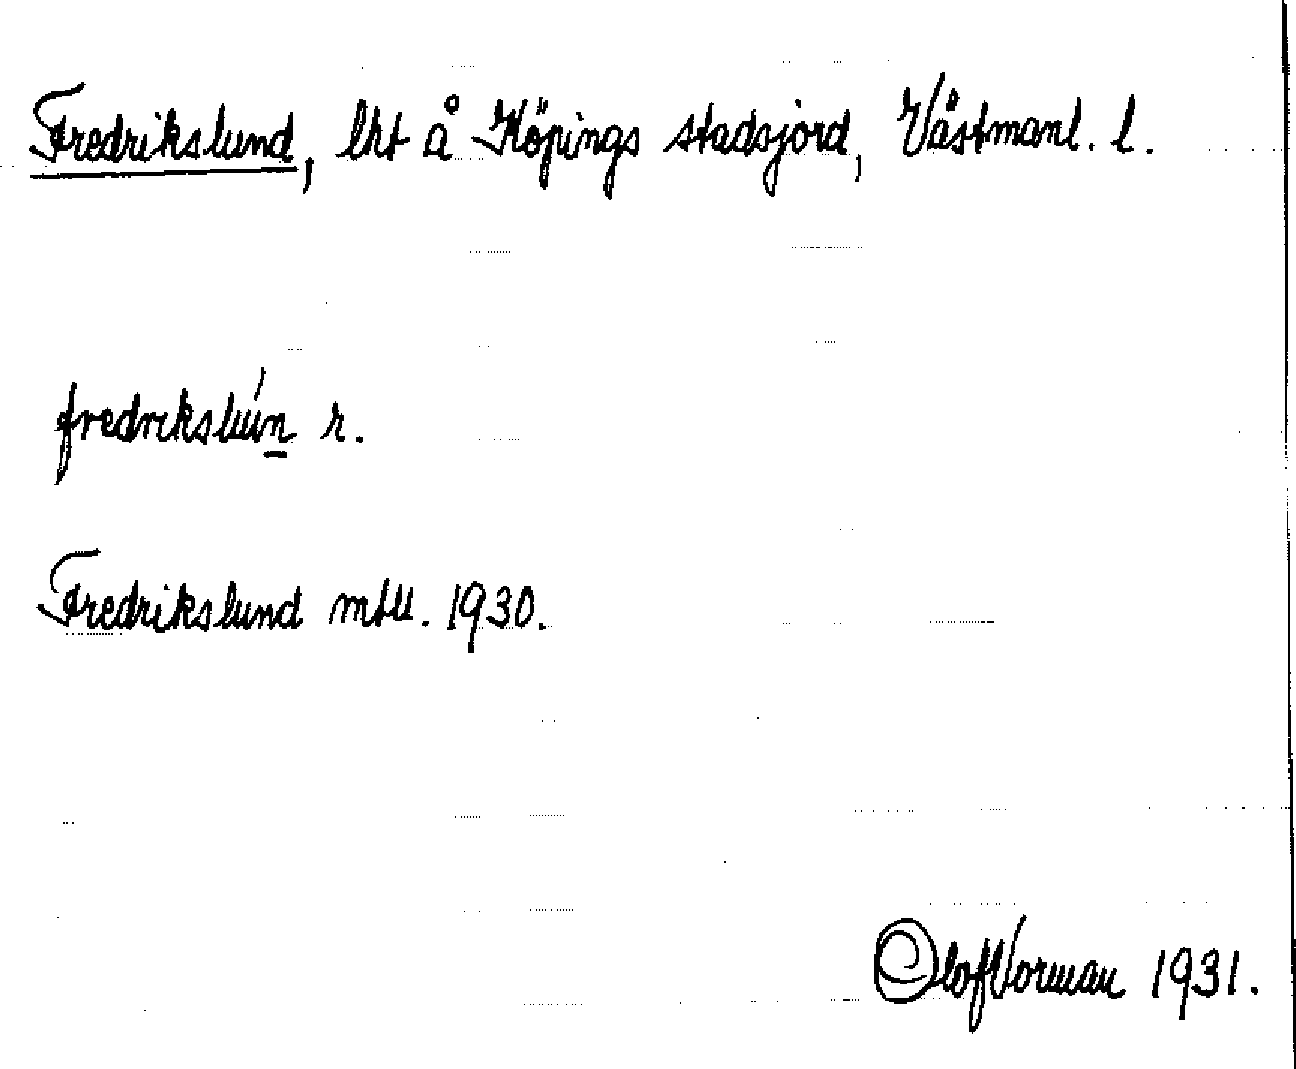 Fredrikslund, lht å Köpings stadsjord, Västmanl. l.
fredrikslún r.
Fredrikslund mtll. 1930.
Olof Vorman 1931.